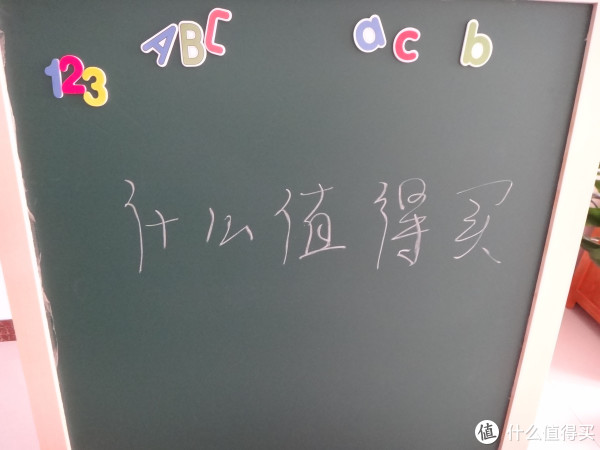 ABC
a c b
123
什么值得买
值 什么值得买